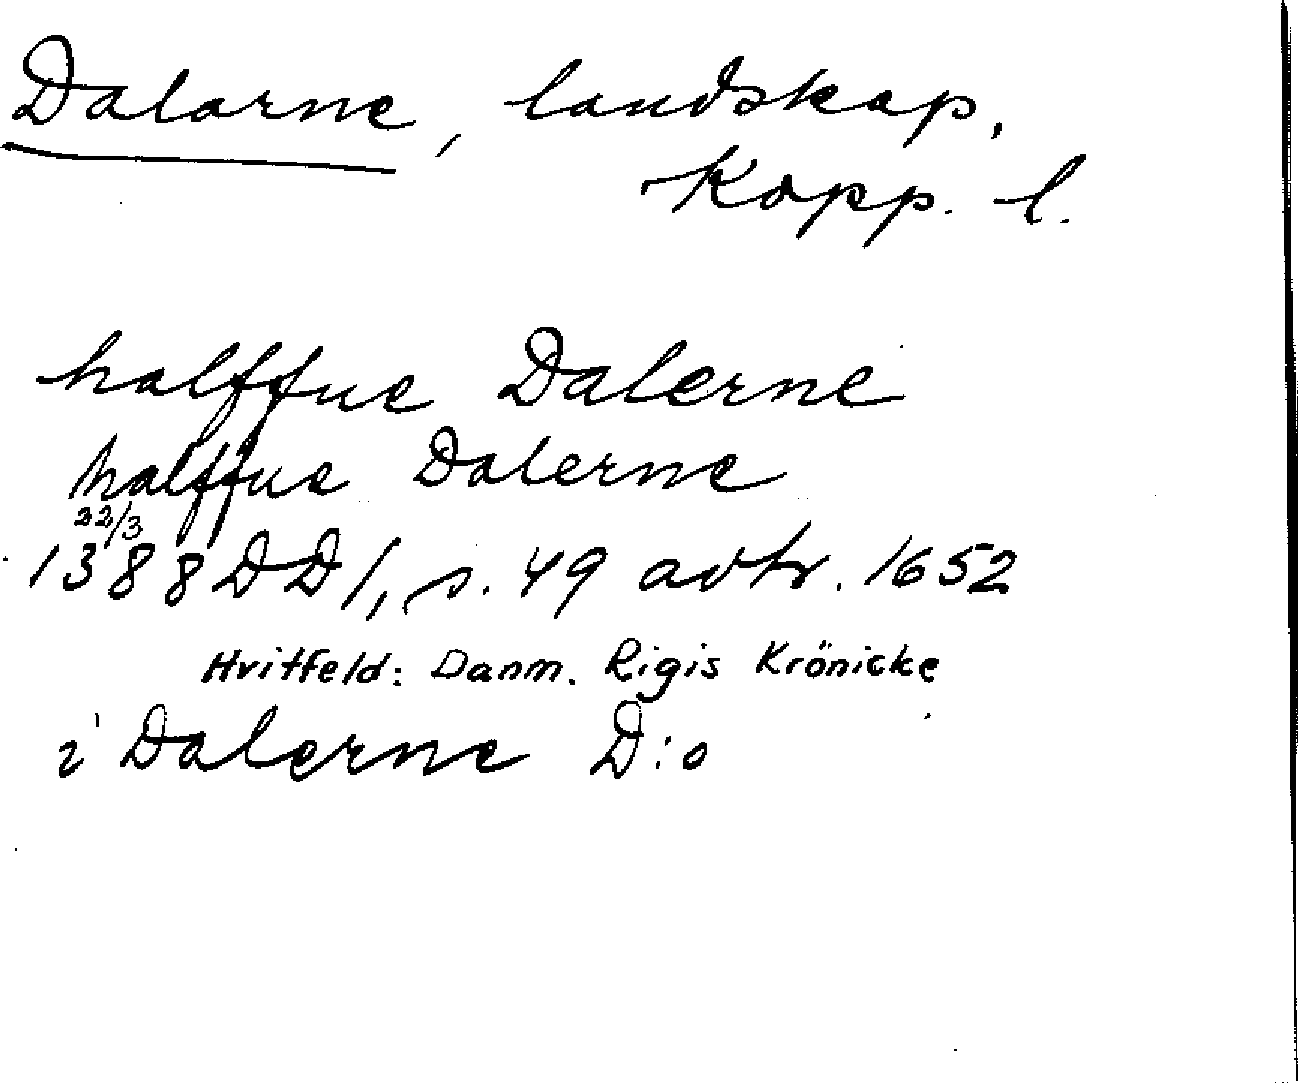 Dalarne, landskap,
Kopp. l.
halffue Dalerne
halffue Dalerne
22/3
1388 DD 1, s. 49 avtr. 1652
Hvitfeld: Danm. Rigis Krönicke
i Dalerne D:o